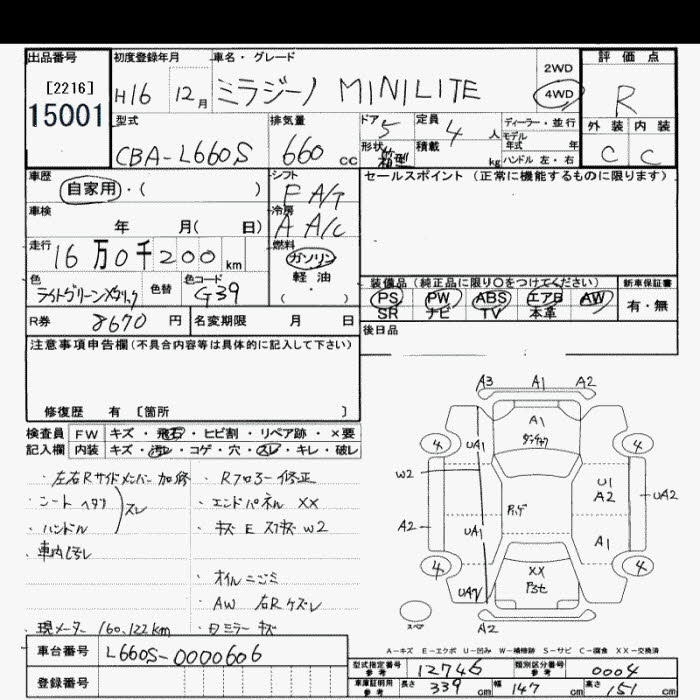 出品番号
[2216]
15001
初度登録年月
H16 12月
車名・グレード
ミラジーノ MINILITE
2WD
4WD
評価点
R
外装 内装
C C
型式
CBA-L660S
排気量
660 cc
ドア 5
形状 箱型
定員 4 人
積載 kg
ディーラー・並行
モデル年式 年
ハンドル 左・右
車歴
自家用・( )
シフト
F A/T
冷房
A A/C
車検
年 月( 日)
走行
16万0千200km
燃料
ガソリン
軽油
( ・ )
色
ライトグリーンメタリック
色替
色コード
G39
R券 8670 円
名変期限 月 日
セールスポイント(正常に機能するものに限ります)
装備品(純正品に限り○をつけてください)
PS PW ABS エアB AW
SR ナビ TV 本革
新車保証書
有・無
後日品
注意事項申告欄(不具合内容等は具体的に記入して下さい)
修復歴 有 [箇所 ]
検査員記入欄
FW キズ・飛石・ヒビ割・リペア跡・×要
内装 キズ・汚れ・コゲ・穴・スレ・キレ・破レ
・左右Rサイドメンバー加修
・シート ヘタリ
・ハンドル スレ
・車内
現メーター 160,122km
・Rフロアー修正
・エンドパネル XX
・キズ E スリキズ W2
・オイルニジミ
・AW 右Rケズレ
・ミラー キズ
A3 A1 A2
A1
4 4
UA1
W2
U1
A2
UA2
A2
UA1
A1
4 4
XX
A2
スペア
A-キズ E-エクボ U-凹み W-補修跡 S-サビ C-腐食 XX-交換済
車台番号 L660S-0000606
登録番号
型式指定番号 参考 12746
類別区分番号 参考 0004
車庫証明用 参考 長さ 339 cm 幅 147 cm 高さ 151 cm